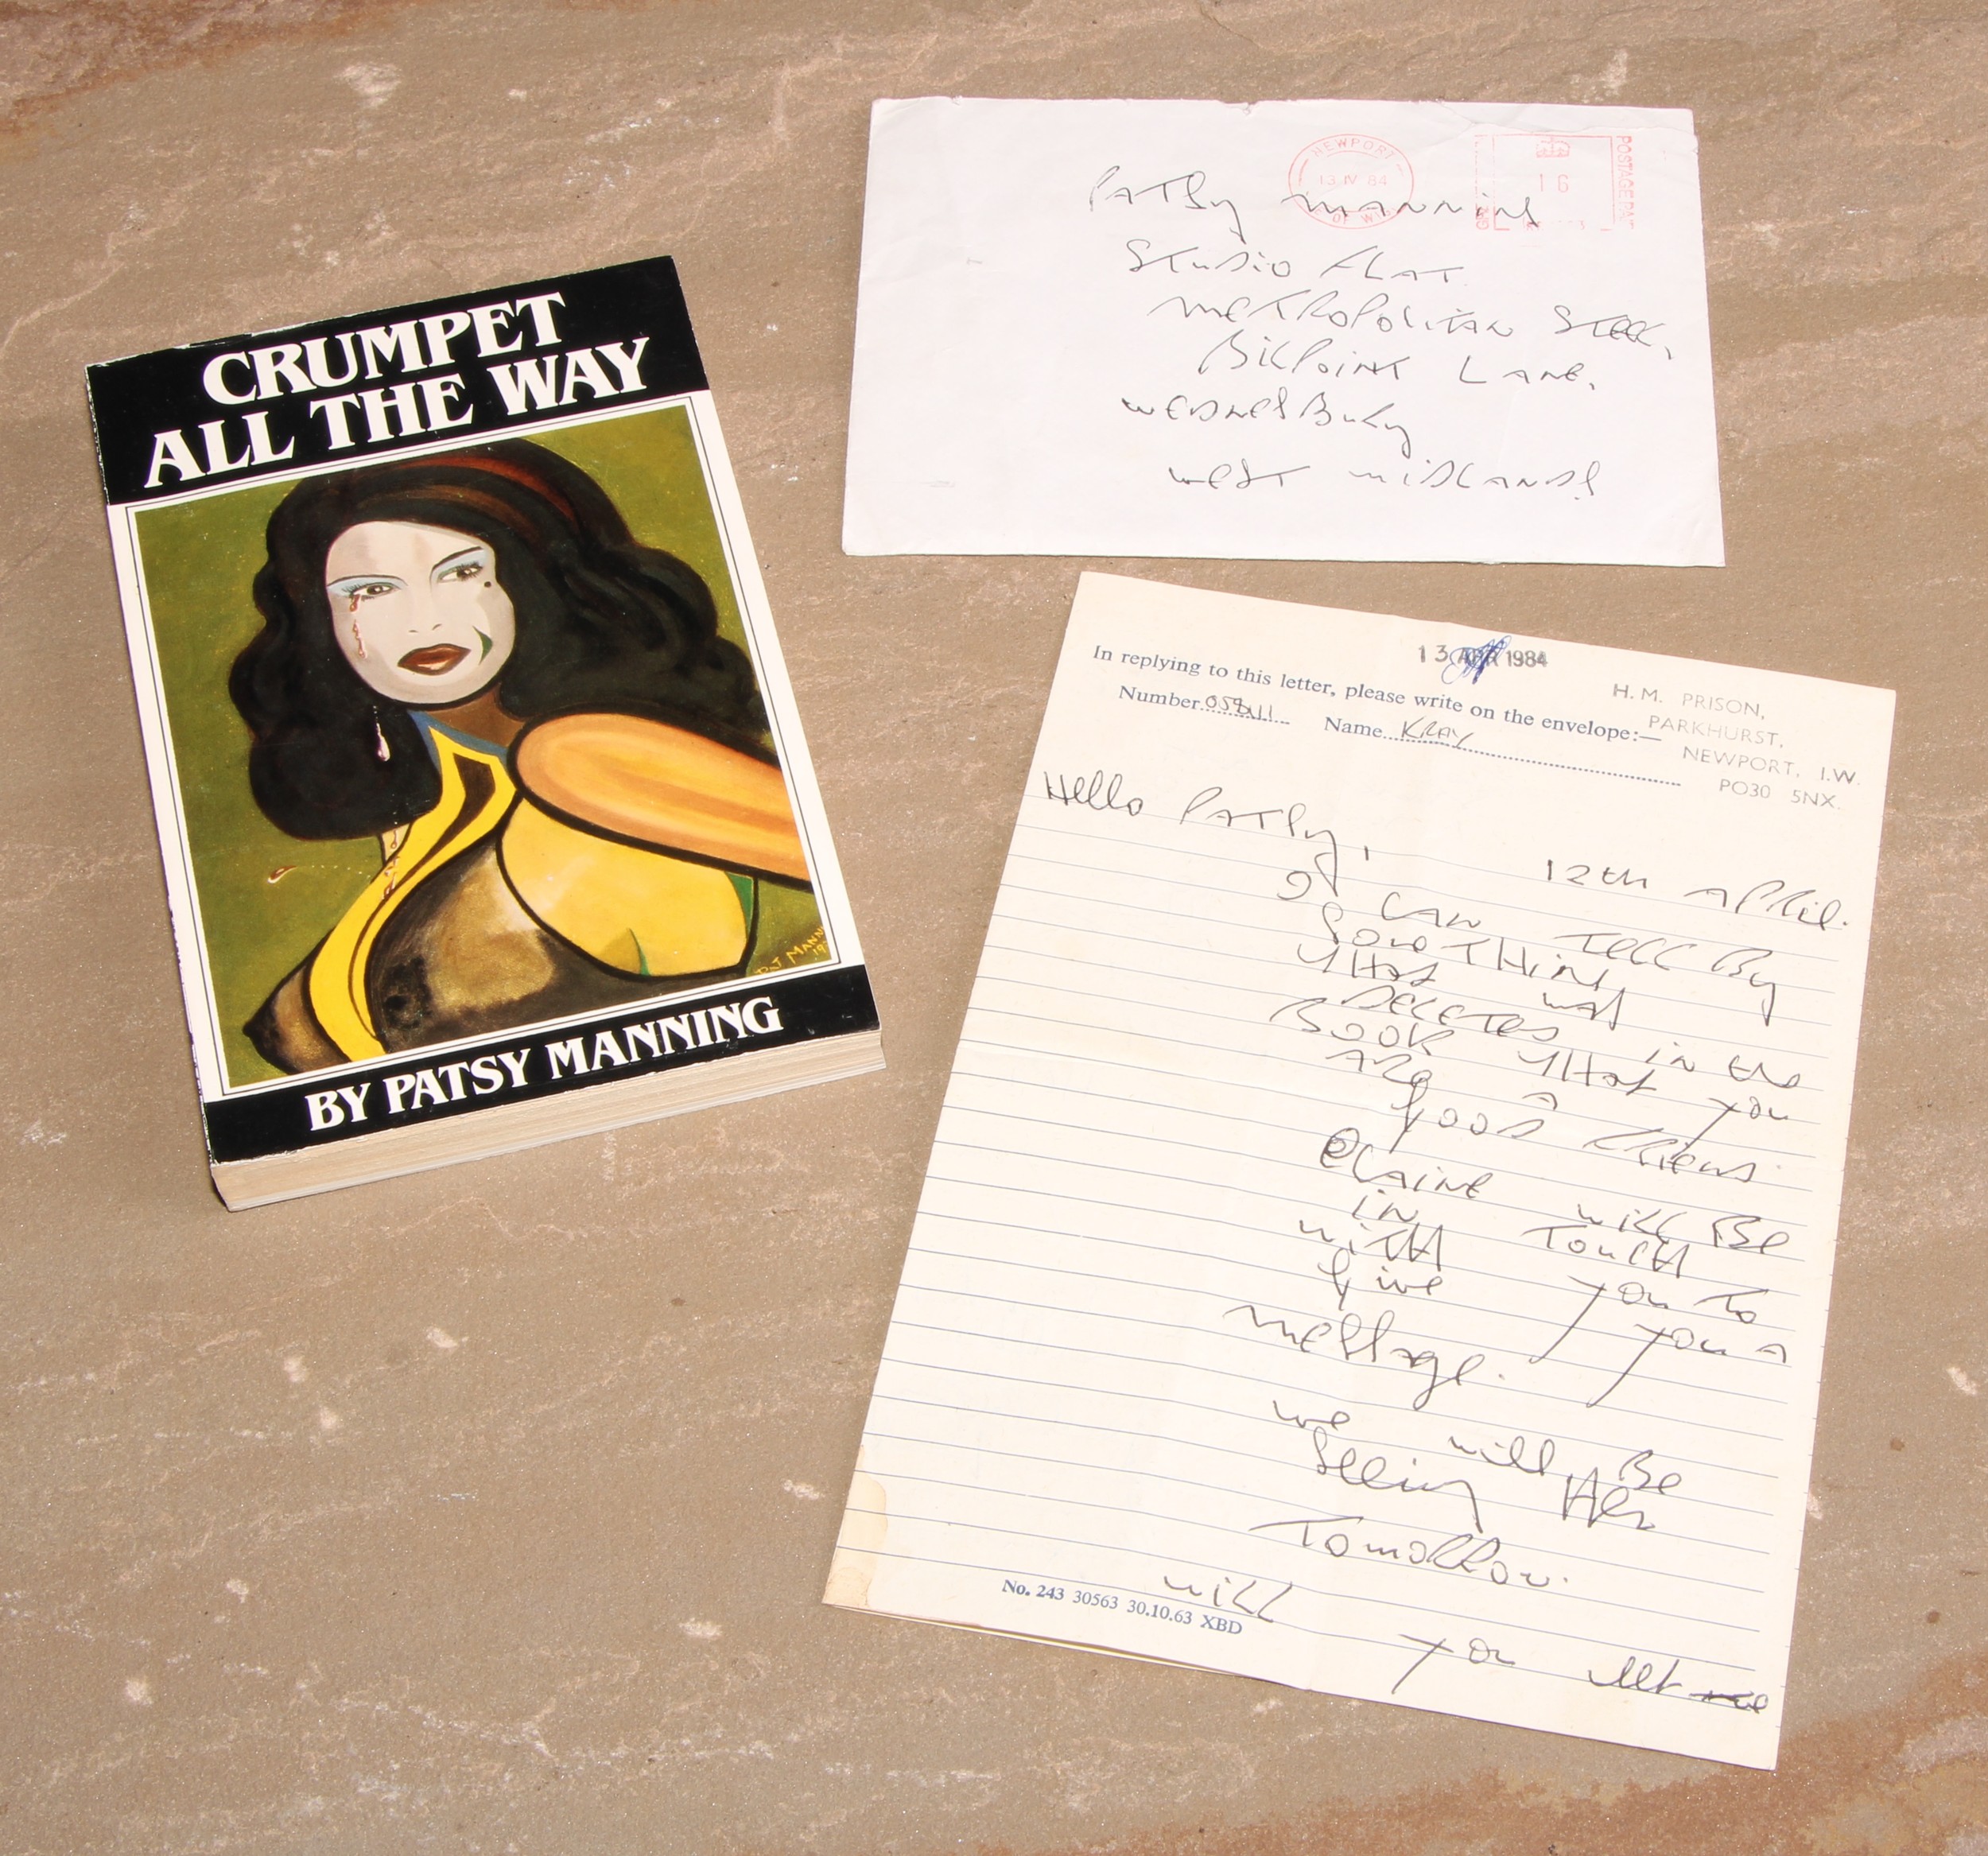 CRUMPET
ALL THE WAY
PAT MANN
19
BY PATSY MANNING
NEWPORT
13 IV 84
OF WI
16
POSTAGE PAI
Patsy Manning
Studio Flat
Metropolitan Steel,
Bilpoint Lane,
Wednesbury
West Midlands
13 APR 1984
In replying to this letter, please write on the envelope:—
Number 058111 Name KRAY
H. M. PRISON,
PARKHURST,
NEWPORT, I.W.
PO30 5NX.
Hello Patsy,
12th April.
I can tell by
something
that was
deleted in the
Book that you
are a
good friend.
Elaine will be
in touch
with you to
give you a
message.
we will Be
seeing Her
Tomorrow.
will
you let me
No. 243 30563 30.10.63 XBD